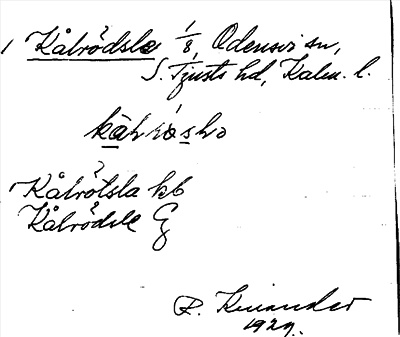 Kålrödsle 1/8, Odensvi sn,
S. Tjusts hd, Kalm. l.
Kålrötsla kb
Kålrödsle Eg
R. Kinander
1929.